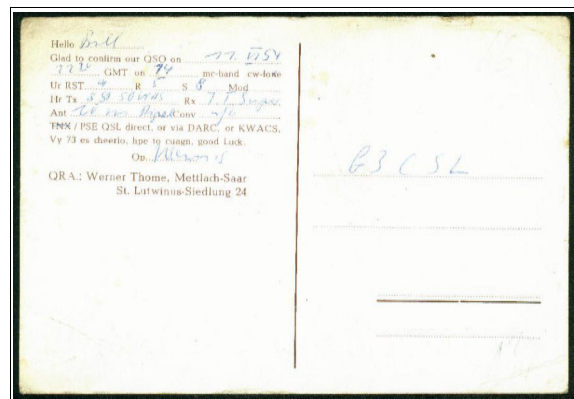 Hello Bill
Glad to confirm our QSO on 22. VI 54
22 20 GMT on 14 mc-band cw-fone
Ur RST 4 R 5 S 8 Mod
Hr Tx 50 Rx Super
Ant Conv
TNX / PSE QSL direct. or via DARC. or KWACS.
Vy 73 es cheerio, hpe to cuagn, good Luck.
Op. Werner
QRA.: Werner Thome, Mettlach-Saar
St. Lutwinus-Siedlung 24
G3CSL